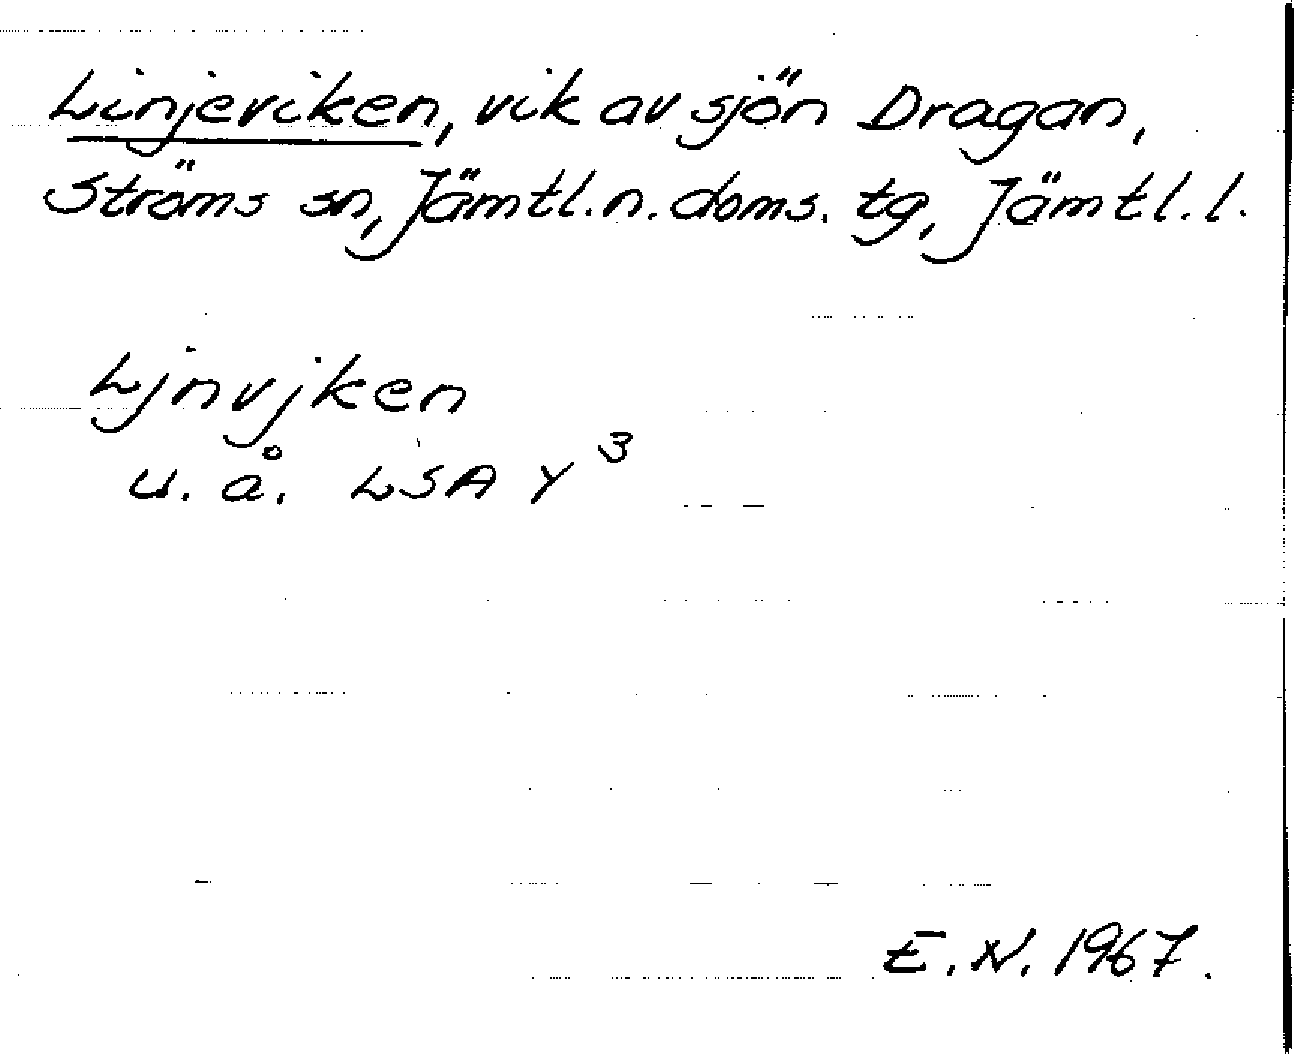 Linjeviken, vik av sjön Dragan,
Ströms sn, Jämtl. n. doms. tg, Jämtl. l.
Ljnvjken
u. å. LSA Y 3
E. N. 1967.